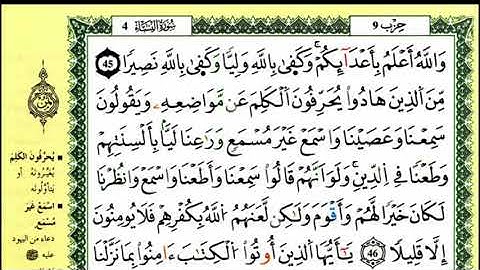 حِزْب 9
سُورَةُ النِّسَاء 4
وَاللَّهُ أَعْلَمُ بِأَعْدَآئِكُمْ وَكَفَىٰ بِاللَّهِ وَلِيًّا وَكَفَىٰ بِاللَّهِ نَصِيرًا 45
مِّنَ الَّذِينَ هَادُوا يُحَرِّفُونَ الْكَلِمَ عَن مَّوَاضِعِهِ وَيَقُولُونَ
سَمِعْنَا وَعَصَيْنَا وَاسْمَعْ غَيْرَ مُسْمَعٍ وَرَاعِنَا لَيًّا بِأَلْسِنَتِهِمْ
وَطَعْنًا فِي الدِّينِ وَلَوْ أَنَّهُمْ قَالُوا سَمِعْنَا وَأَطَعْنَا وَاسْمَعْ وَانظُرْنَا
لَكَانَ خَيْرًا لَّهُمْ وَأَقْوَمَ وَلَٰكِن لَّعَنَهُمُ اللَّهُ بِكُفْرِهِمْ فَلَا يُؤْمِنُونَ
إِلَّا قَلِيلًا 46 يَٰٓأَيُّهَا الَّذِينَ أُوتُوا الْكِتَٰبَ ءَامِنُوا بِمَا نَزَّلْنَا
يُحَرِّفُونَ الْكَلِمَ
يُغَيِّرُونَهُ أو
يتأوّلونه
اسْمَعْ غَيْرَ
مُسْمَعٍ
دعاء من اليهود
عليه ﷺ